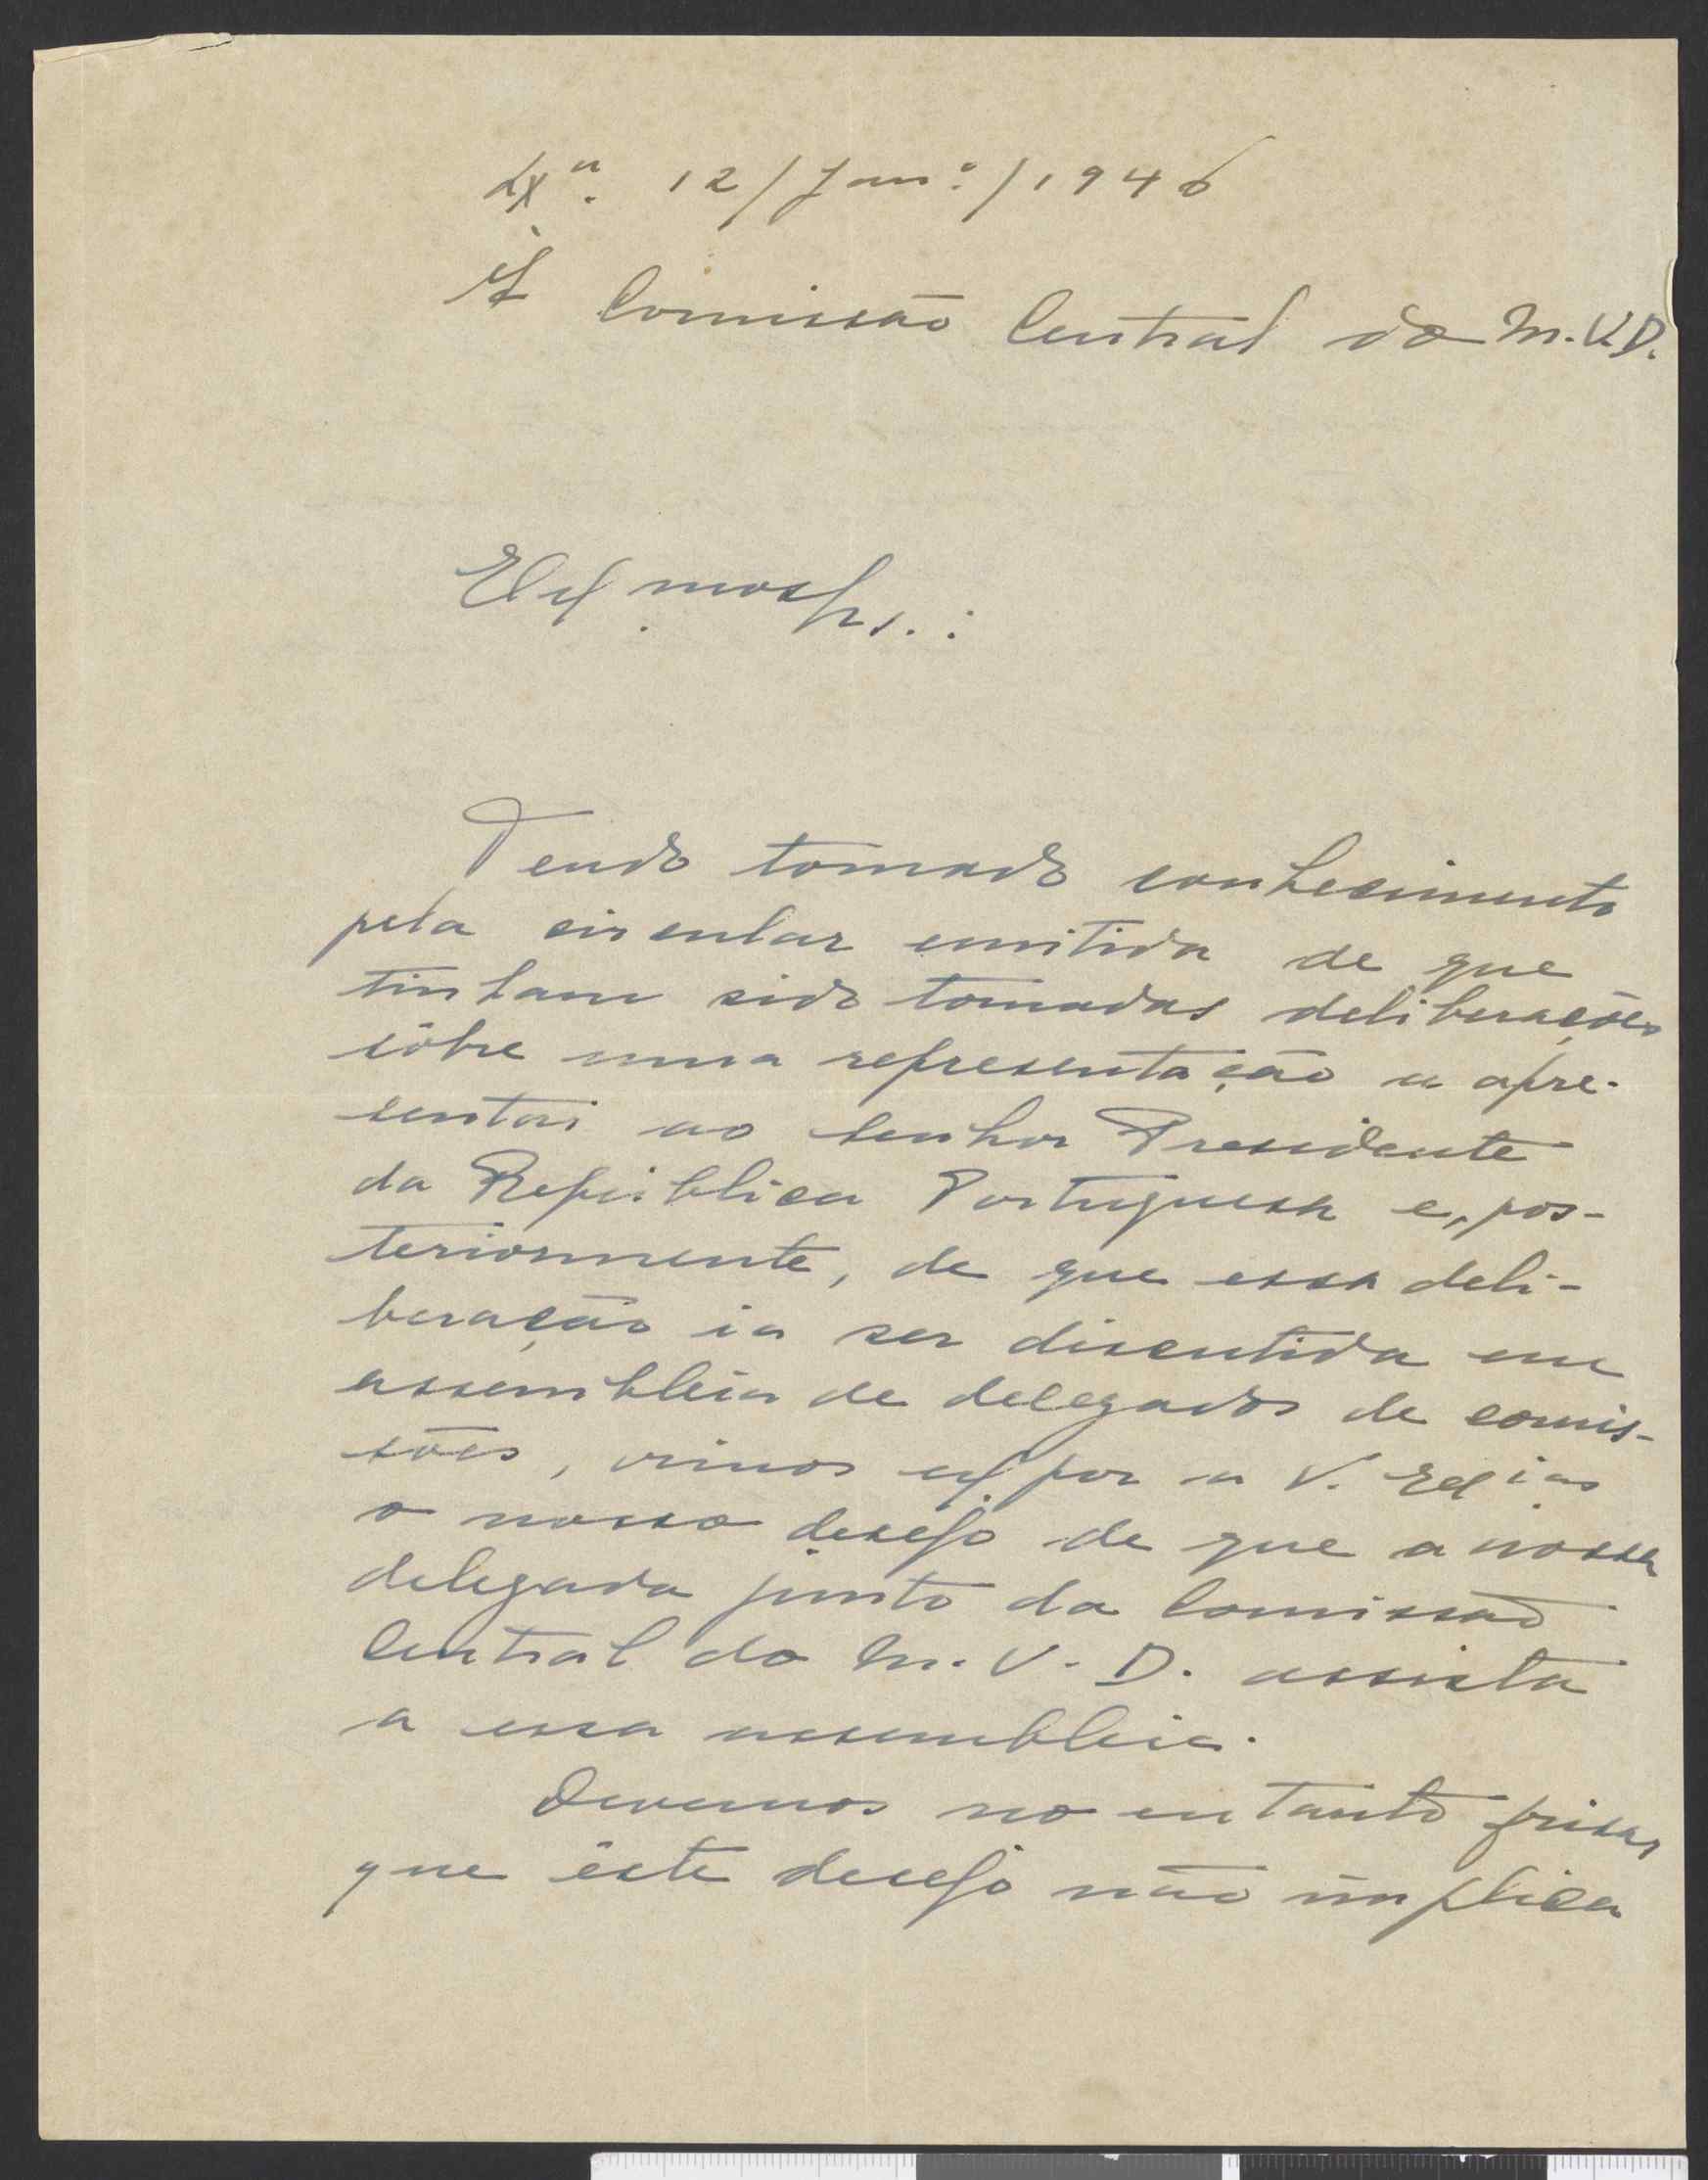 Lxª. 12/Janº/1946
À Comissão Central do M.U.D.
Exmos Srs.:
Tendo tomado conhecimento
pela circular emitida de que
tinham sido tomadas deliberações
sôbre uma representação a apre-
sentar ao Senhor Presidente
da República Portuguesa e, pos-
teriormente, de que essa deli-
beração ia ser discutida em
assembleia de delegados de comis-
sões, vimos expor a V. Exias
o nosso desejo de que a nossa
delegada junto da Comissão
Central do M.U.D. assista
a essa assembleia.
Devemos no entanto frisar
que êste desejo não implica